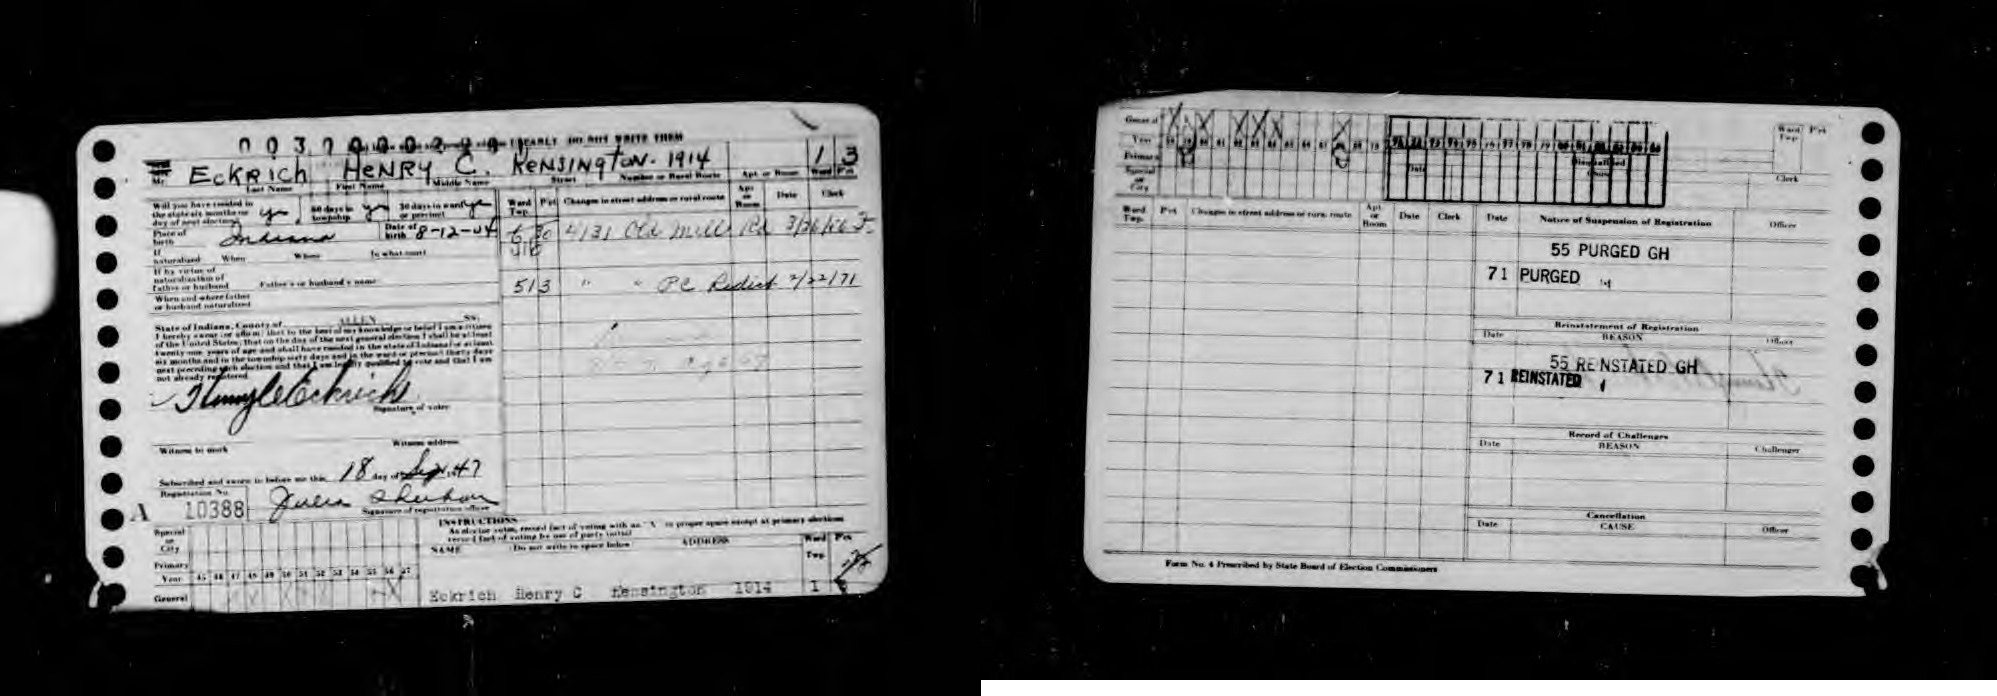 CLEARLY DO NOT WRITE THEM
ECKRICH HENRY C. KENSINGTON. 1914 1 3
Mr. Last Name First Name Middle Name Street Number or Rural Route Apt. or Room Ward Pct
Will you have resided in the state six months on day of next election? yes 60 days in township yes 30 days in ward or precinct yes
Ward Twp. Pct Changes in street address or rural route Apt or Room Date Clerk
Place of birth Indiana Date of birth 8-12-04
4131 Old Mill Rd 3/26/56
If naturalized When Where In what court
If by virtue of naturalization of father or husband Father's or husband's name
513 " " PC Redist 2/22/71
When and where father or husband naturalized
State of Indiana, County of ALLEN SS:
I hereby swear (or affirm) that to the best of my knowledge or belief I am a citizen
of the United States; that on the day of the next general election I shall be at least
twenty-one years of age and shall have resided in the state of Indiana for at least
six months and in the township sixty days and in the ward or precinct thirty days
next preceding such election and that I am legally qualified to vote and that I am
not already registered.
Henry C Eckrich
Signature of voter
Witness to mark Witness address
Subscribed and sworn to before me this 18 day of Sep. 47
Registration No.
A 10388
Signature of registration officer
INSTRUCTIONS
As elector votes, record fact of voting with an "X" in proper space except at primary elections
record fact of voting by use of party initial
Special or City
NAME Do not write in space below ADDRESS Ward Twp. Pct
Primary
Year 45 46 47 48 49 50 51 52 53 54 55 56 57
General
Eckrich Henry C Kensington 1914 1
General
Year
Primary
Special or City
Ward Twp. Pct
Clerk
Ward Twp. Pct Changes in street address or rural route Apt or Room Date Clerk Date Notice of Suspension of Registration Officer
55 PURGED GH
71 PURGED
Reinstatement of Registration
Date REASON Officer
55 REINSTATED GH
71 REINSTATED
Record of Challenges
Date REASON Challenger
Cancellation
Date CAUSE Officer
Form No. 4 Prescribed by State Board of Election Commissioners